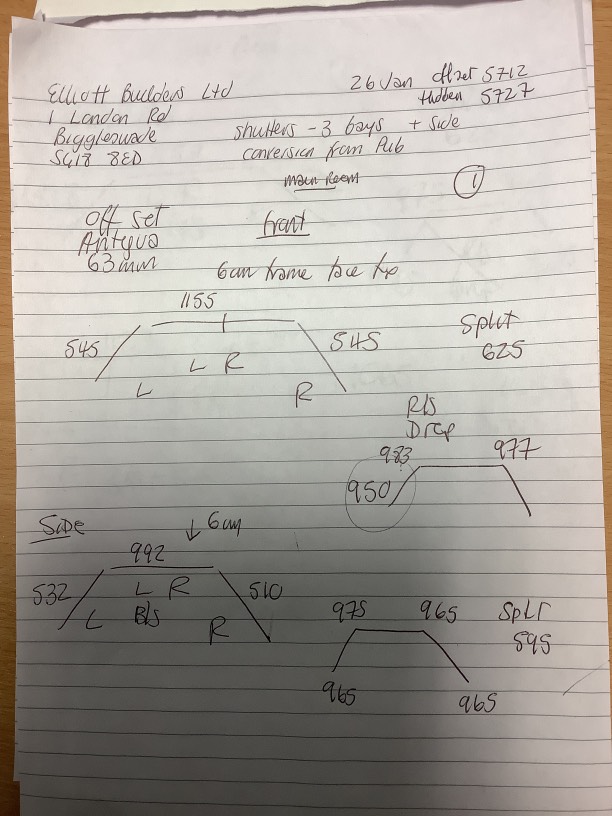 Elliott Builders Ltd
1 London Rd
Biggleswade
SG18 8ED
26 Jan offset 5712
Hidden 5727
shutters - 3 bays + side
conversion from Pub
main Room
1
Off set
Antigua
63mm
front
6cm frame face top
1155
545
545
L
L R
R
Split
625
R/s
Drop
983
977
950
Side
6cm
992
532
510
L R
L
B/s
R
975
965
965
965
Split
595